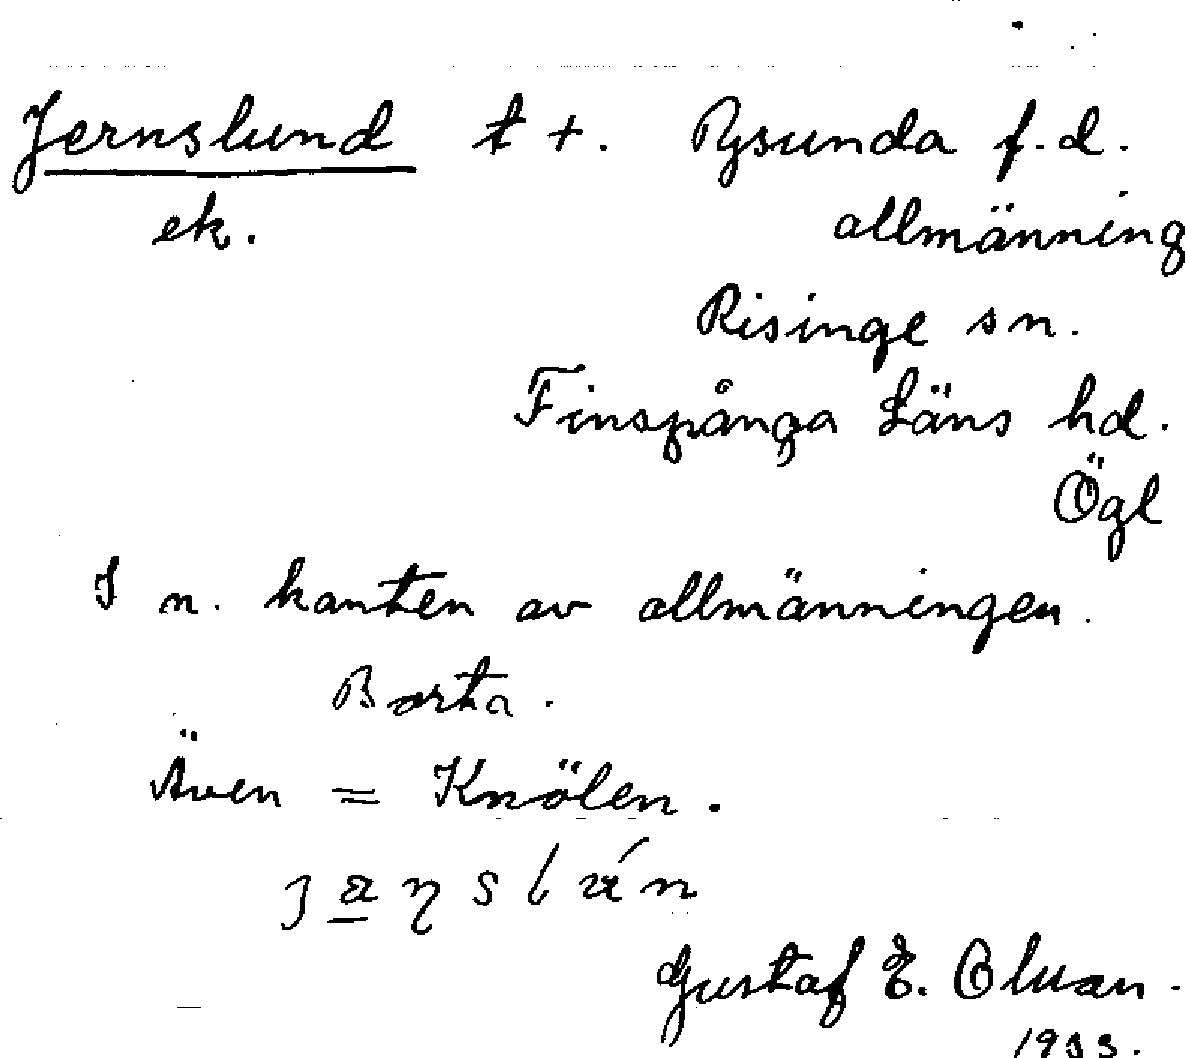 Jernslund t +. Rysunda f.d.
ek. allmänning
Risinge sn.
Finspånga Läns hd.
Ögl
I n. kanten av allmänningen.
Borta.
Även = Knölen.
Gustaf E. Olsson.
1933.